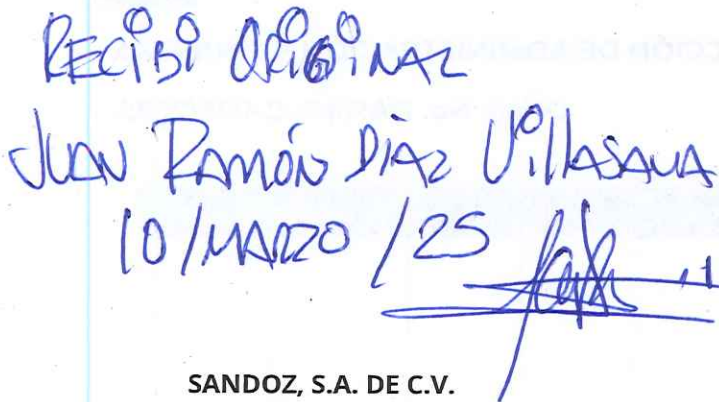 RECiBi ORiGiNAL
JUAN RAMÓN DÍAZ VillASANA
10/MARZO/25
SANDOZ, S.A. DE C.V.